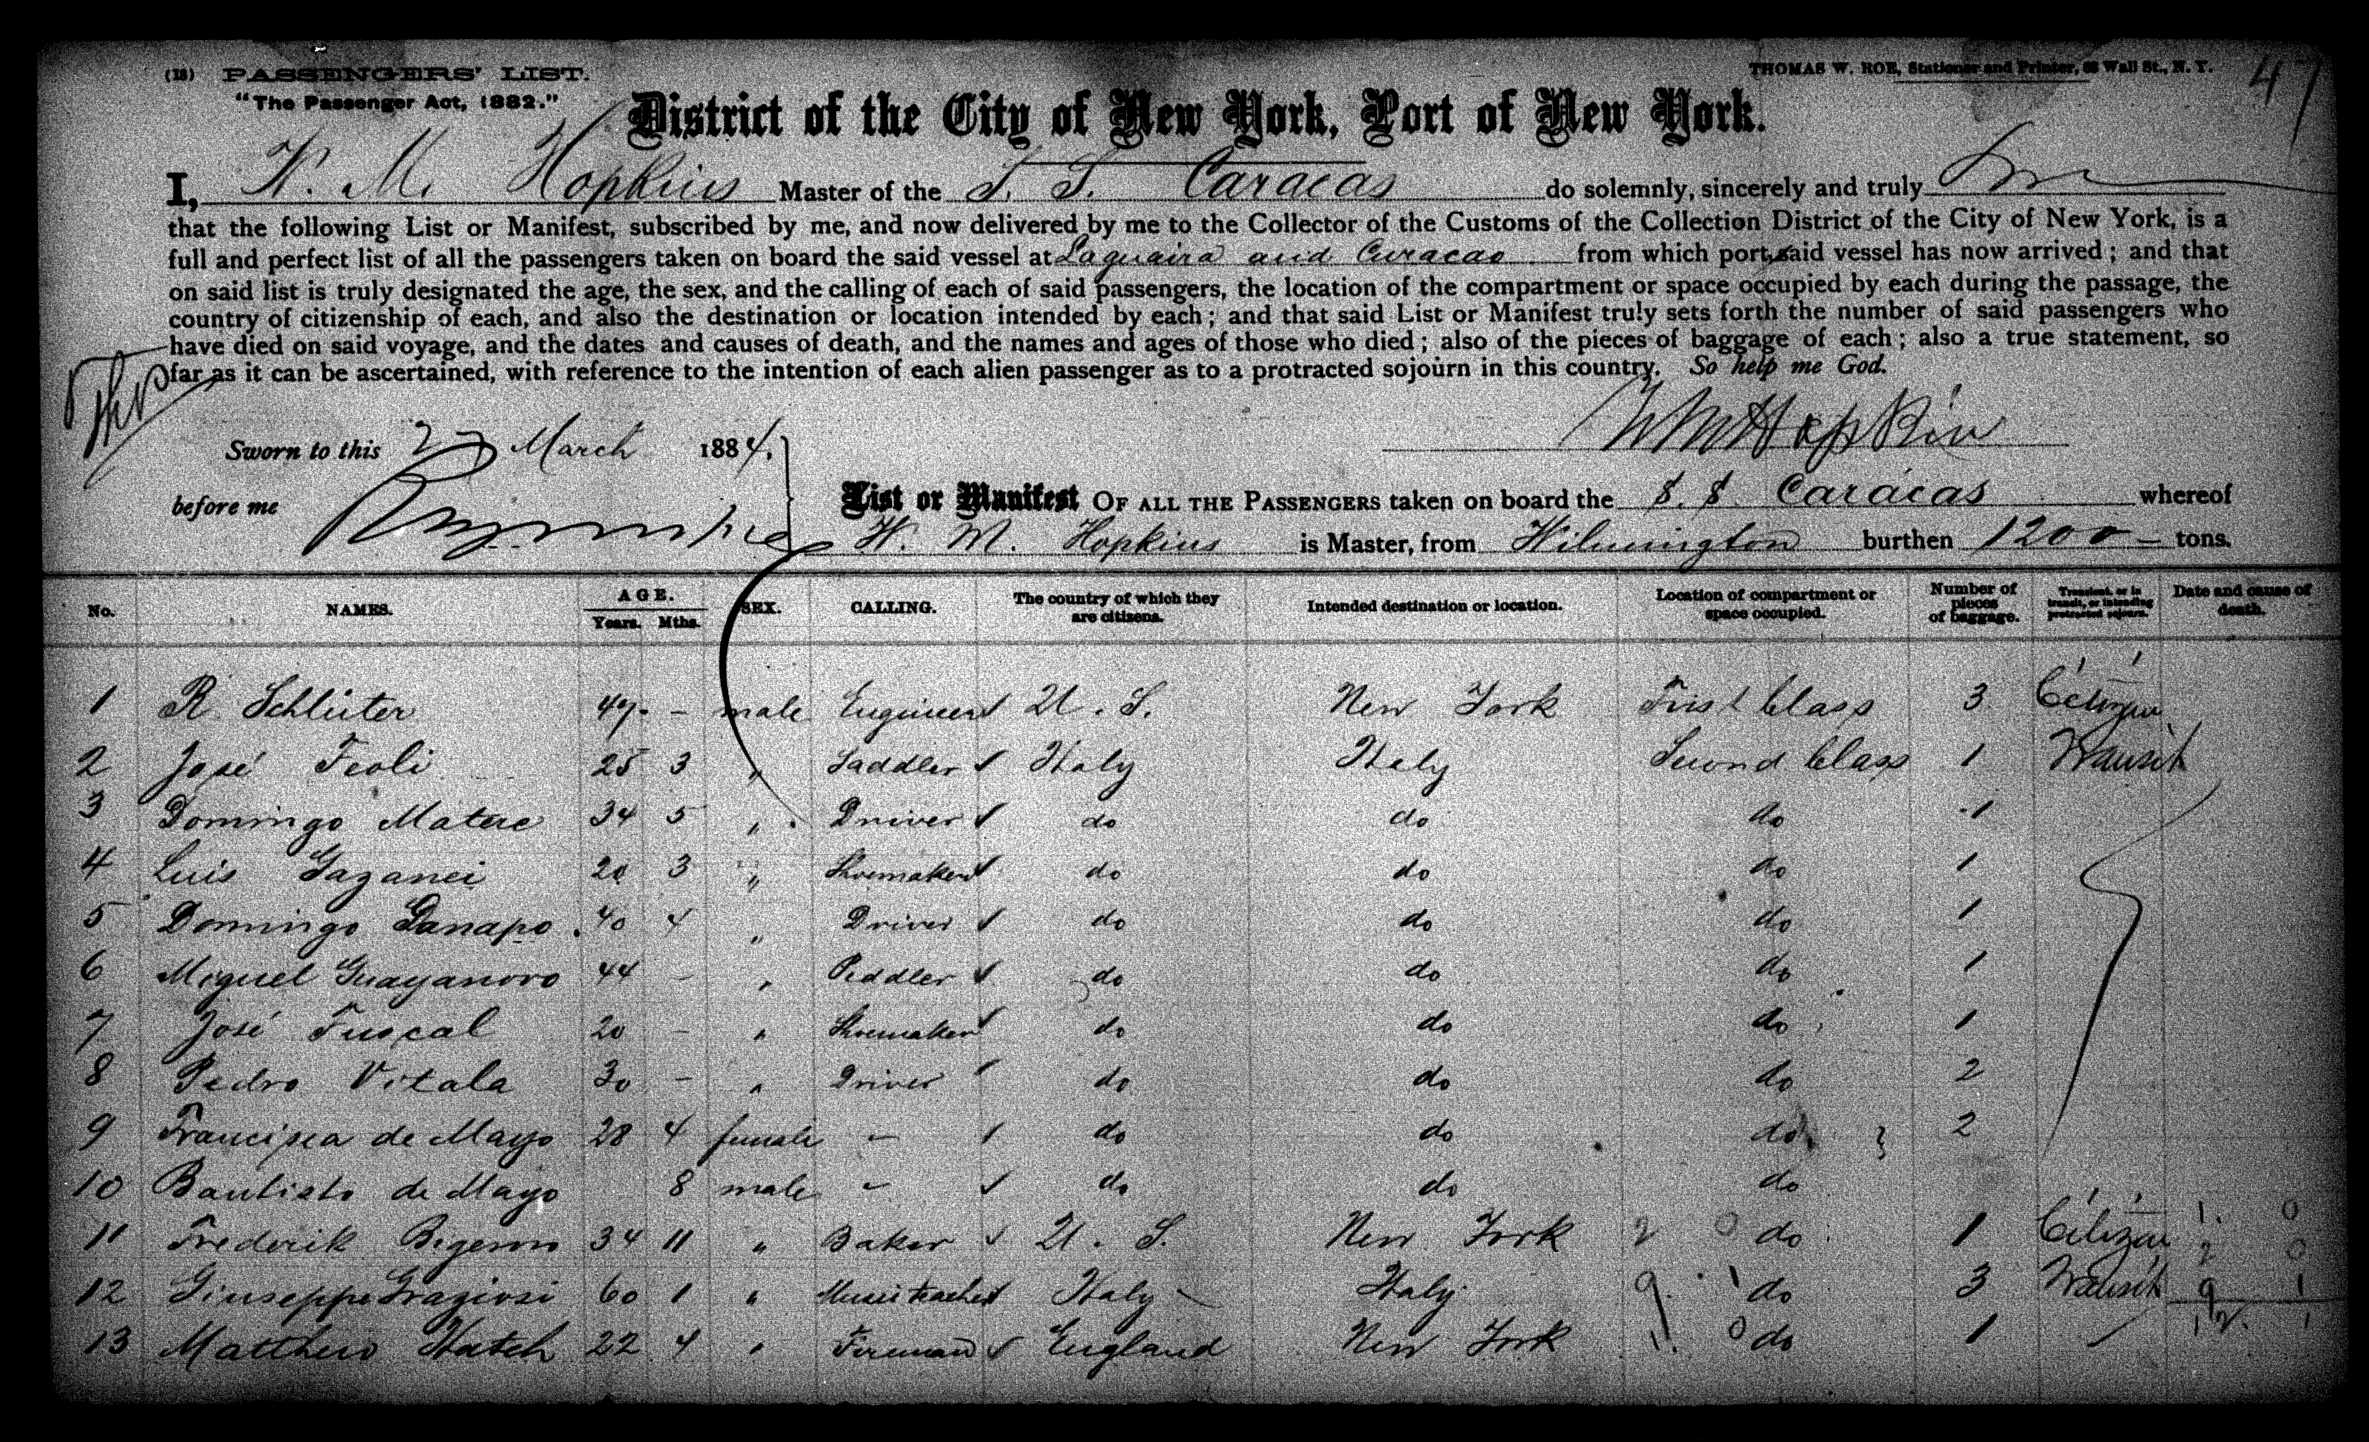 (18) PASSENGERS' LIST.
"The Passenger Act, 1882."
THOMAS W. ROE, Stationer and Printer, Wall St., N. Y.
47
District of the City of New York, Port of New York.
I, W. M. Hopkins Master of the S. S. Caracas do solemnly, sincerely and truly
that the following List or Manifest, subscribed by me, and now delivered by me to the Collector of the Customs of the Collection District of the City of New York, is a
full and perfect list of all the passengers taken on board the said vessel at Laguaira and Curacao from which port, said vessel has now arrived; and that
on said list is truly designated the age, the sex, and the calling of each of said passengers, the location of the compartment or space occupied by each during the passage, the
country of citizenship of each, and also the destination or location intended by each; and that said List or Manifest truly sets forth the number of said passengers who
have died on said voyage, and the dates and causes of death, and the names and ages of those who died; also of the pieces of baggage of each; also a true statement, so
far as it can be ascertained, with reference to the intention of each alien passenger as to a protracted sojourn in this country. So help me God.
WM Hopkins
Sworn to this 27 March 1884.
before me
List or Manifest OF ALL THE PASSENGERS taken on board the S. S Caracas whereof
W. M. Hopkins is Master, from Wilmington burthen 1200 - tons.
No. NAMES. AGE. Years. Mths. SEX. CALLING. The country of which they are citizens. Intended destination or location. Location of compartment or space occupied. Number of pieces of baggage. Transient, or in transit, or intending protracted sojourn. Date and cause of death.
1 R Schlüter 47 - male Engineer U. S. New York First Class 3 Citizen
2 José Feoli 25 3 " Saddler Italy Italy Second Class 1 Transit
3 Domingo Matere 34 5 " Driver do do do 1
4 Luis Gazanei 20 3 " Shoemaker do do do 1
5 Domingo Panapo 40 4 " Driver do do do 1
6 Miguel Guayanoro 44 - " Peddler do do do 1
7 José Fuscal 20 - " Shoemaker do do do 1
8 Pedro Vitala 30 - " Driver do do do 2
9 Francisca de Mayo 28 4 female - do do do 2
10 Bautisto de Mayo 8 male - do do do
11 Frederik Bigeron 34 11 " Baker U. S. New York 2 0 do 1 Citizen 1. 0
2 0
12 Giuseppe Graziosi 60 1 " Music teacher Italy Italy 9. 1 do 3 Transit 9 1
13 Matthew Hatch 22 4 " Fireman England New York 1. 0 do 1 / 12. 1